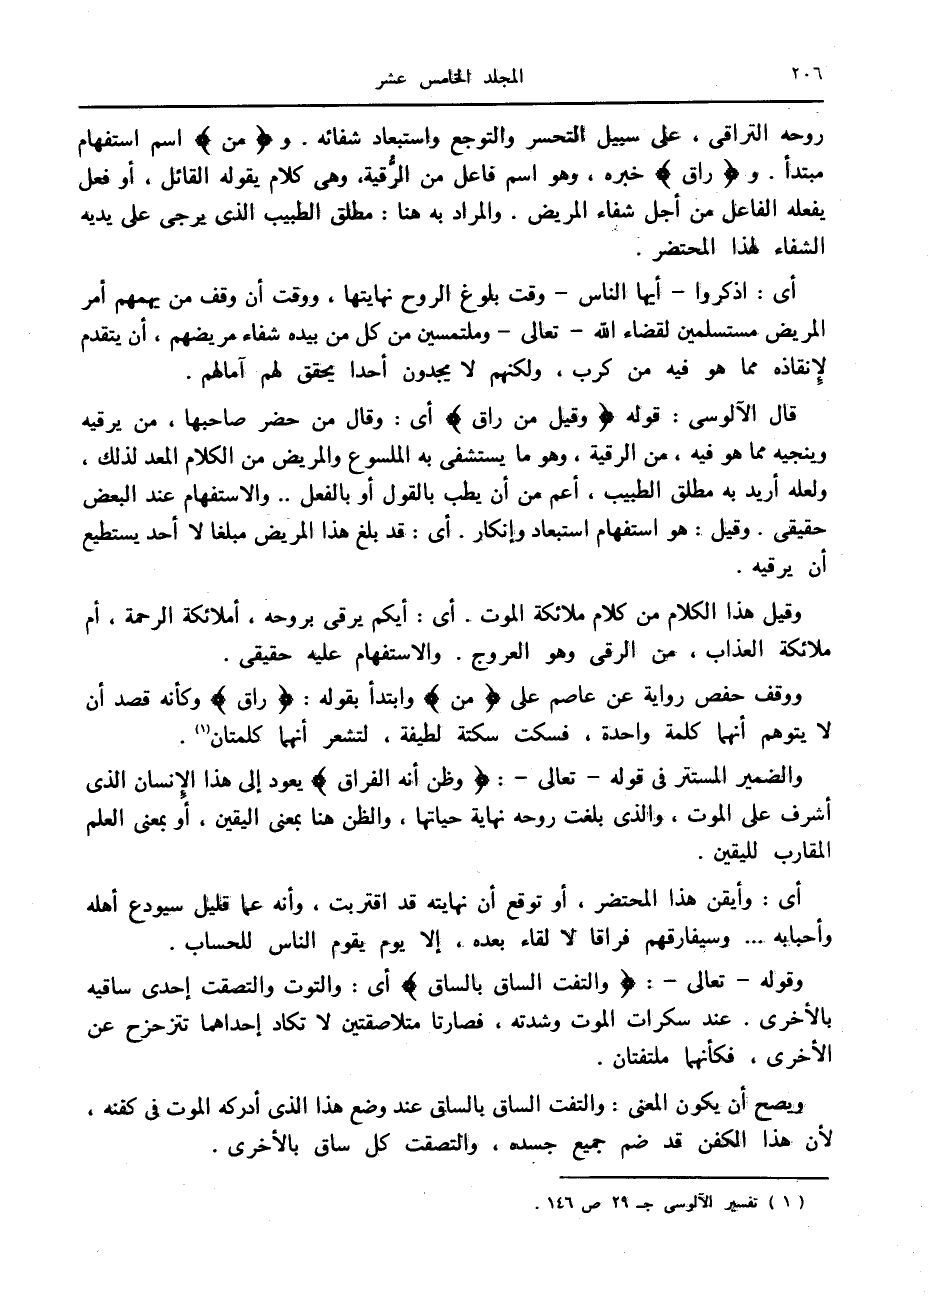 ٢٠٦
المجلد الخامس عشر
روحه التراقى ، على سبيل التحسر والتوجع واستبعاد شفائه . و ﴿ من ﴾ اسم استفهام
مبتدأ . و ﴿ راق ﴾ خبره ، وهو اسم فاعل من الرُّقية، وهى كلام يقوله القائل ، أو فعل
يفعله الفاعل من أجل شفاء المريض . والمراد به هنا : مطلق الطبيب الذى يرجى على يديه
الشفاء لهذا المحتضر .
أى : اذكروا – أيها الناس – وقت بلوغ الروح نهايتها ، ووقت أن وقف من يهمهم أمر
المريض مستسلمين لقضاء الله – تعالى – وملتمسين من كل من بيده شفاء مريضهم ، أن يتقدم
لإنقاذه مما هو فيه من كرب ، ولكنهم لا يجدون أحدا يحقق لهم آمالهم .
قال الآلوسى : قوله ﴿ وقيل من راق ﴾ أى : وقال من حضر صاحبها ، من يرقيه
وينجيه مما هو فيه ، من الرقية ، وهو ما يستشفى به الملسوع والمريض من الكلام المعد لذلك ،
ولعله أريد به مطلق الطبيب ، أعم من أن يطب بالقول أو بالفعل .. والاستفهام عند البعض
حقيقى . وقيل : هو استفهام استبعاد وإنكار . أى : قد بلغ هذا المريض مبلغا لا أحد يستطيع
أن يرقيه .
وقيل هذا الكلام من كلام ملائكة الموت . أى : أيكم يرقى بروحه ، أملائكة الرحمة ، أم
ملائكة العذاب ، من الرقى وهو العروج . والاستفهام عليه حقيقى .
ووقف حفص رواية عن عاصم على ﴿ من ﴾ وابتدأ بقوله : ﴿ راق ﴾ وكأنه قصد أن
لا يتوهم أنهما كلمة واحدة ، فسكت سكتة لطيفة ، لتشعر أنهما كلمتان(١) .
والضمير المستتر فى قوله – تعالى – : ﴿ وظن أنه الفراق ﴾ يعود إلى هذا الإنسان الذى
أشرف على الموت ، والذى بلغت روحه نهاية حياتها ، والظن هنا بمعنى اليقين ، أو بمعنى العلم
المقارب لليقين .
أى : وأيقن هذا المحتضر ، أو توقع أن نهايته قد اقتربت ، وأنه عما قليل سيودع أهله
وأحبابه ... وسيفارقهم فراقا لا لقاء بعده ، إلا يوم يقوم الناس للحساب .
وقوله – تعالى – : ﴿ والتفت الساق بالساق ﴾ أى : والتوت والتصقت إحدى ساقيه
بالأخرى . عند سكرات الموت وشدته ، فصارتا متلاصقتين لا تكاد إحداهما تتزحزح عن
الأخرى ، فكأنهما ملتفتان .
ويصح أن يكون المعنى : والتفت الساق بالساق عند وضع هذا الذى أدركه الموت فى كفنه ،
لأن هذا الكفن قد ضم جميع جسده ، والتصقت كل ساق بالأخرى .
( ١ ) تفسير الآلوسى جـ ٢٩ ص ١٤٦ .